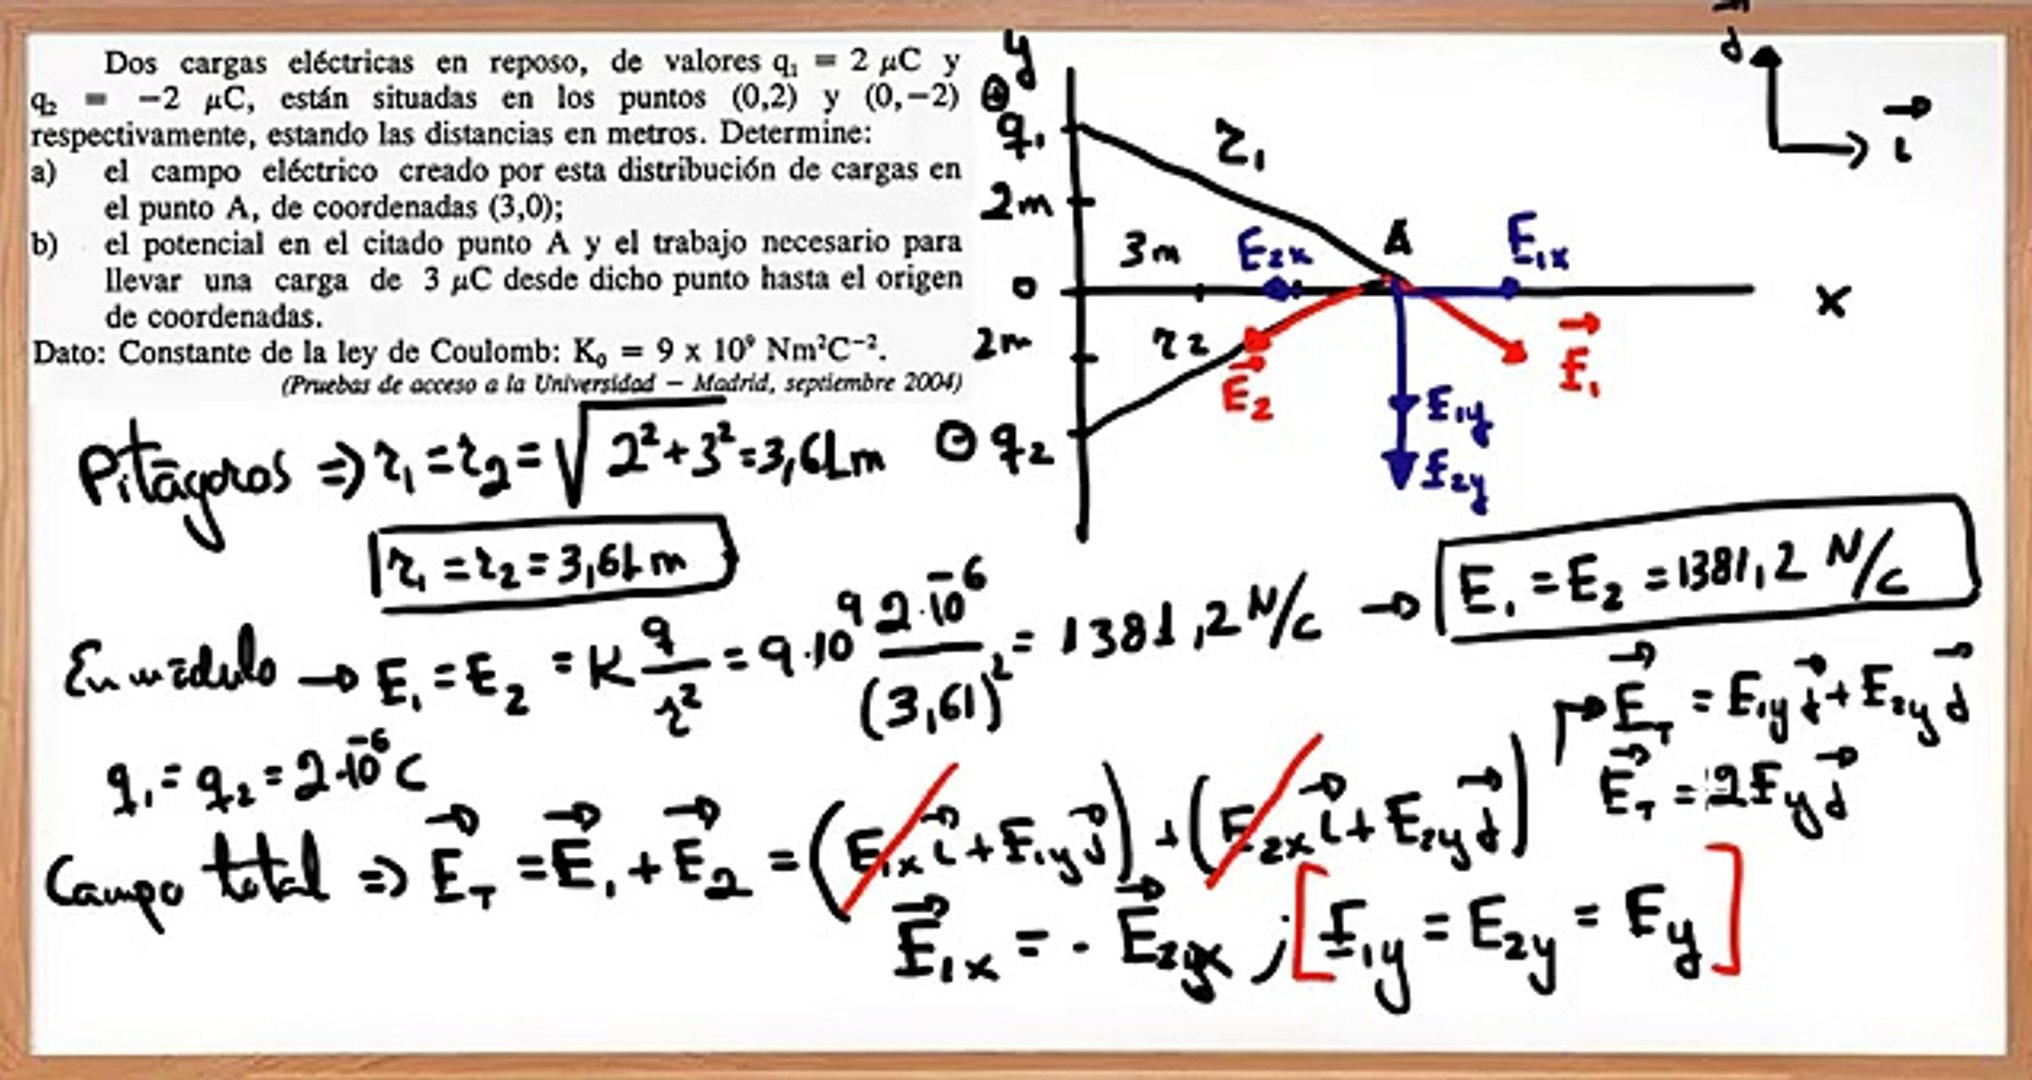 Dos cargas eléctricas en reposo, de valores q₁ = 2 μC y
q₂ = −2 μC, están situadas en los puntos (0,2) y (0,−2)
respectivamente, estando las distancias en metros. Determine:
a) el campo eléctrico creado por esta distribución de cargas en
el punto A, de coordenadas (3,0);
b) el potencial en el citado punto A y el trabajo necesario para
llevar una carga de 3 μC desde dicho punto hasta el origen
de coordenadas.
Dato: Constante de la ley de Coulomb: K₀ = 9 x 10⁹ Nm²C⁻².
(Pruebas de acceso a la Universidad — Madrid, septiembre 2004)
y
j⃗
i⃗
⊕ q₁
r₁
2m
3m
E₂ₓ
A
E₁ₓ
0
x
2m
r₂
E⃗₂
E⃗₁
E₁y
E₂y
⊖ q₂
Pitágoras ⇒ r₁ = r₂ = √2² + 3² = 3,61 m
r₁ = r₂ = 3,61 m
En módulo → E₁ = E₂ = K q/r² = 9·10⁹ 2·10⁻⁶/(3,61)² = 1381,2 N/C → E₁ = E₂ = 1381,2 N/C
q₁ = q₂ = 2·10⁻⁶ C
E⃗T = E₁y j⃗ + E₂y j⃗
E⃗T = 2Ey j⃗
Campo total ⇒ E⃗T = E⃗₁ + E⃗₂ = (E₁ₓ i⃗ + E₁y j⃗) + (E₂ₓ i⃗ + E₂y j⃗)
E⃗₁ₓ = - E⃗₂ₓ ; [E₁y = E₂y = Ey]